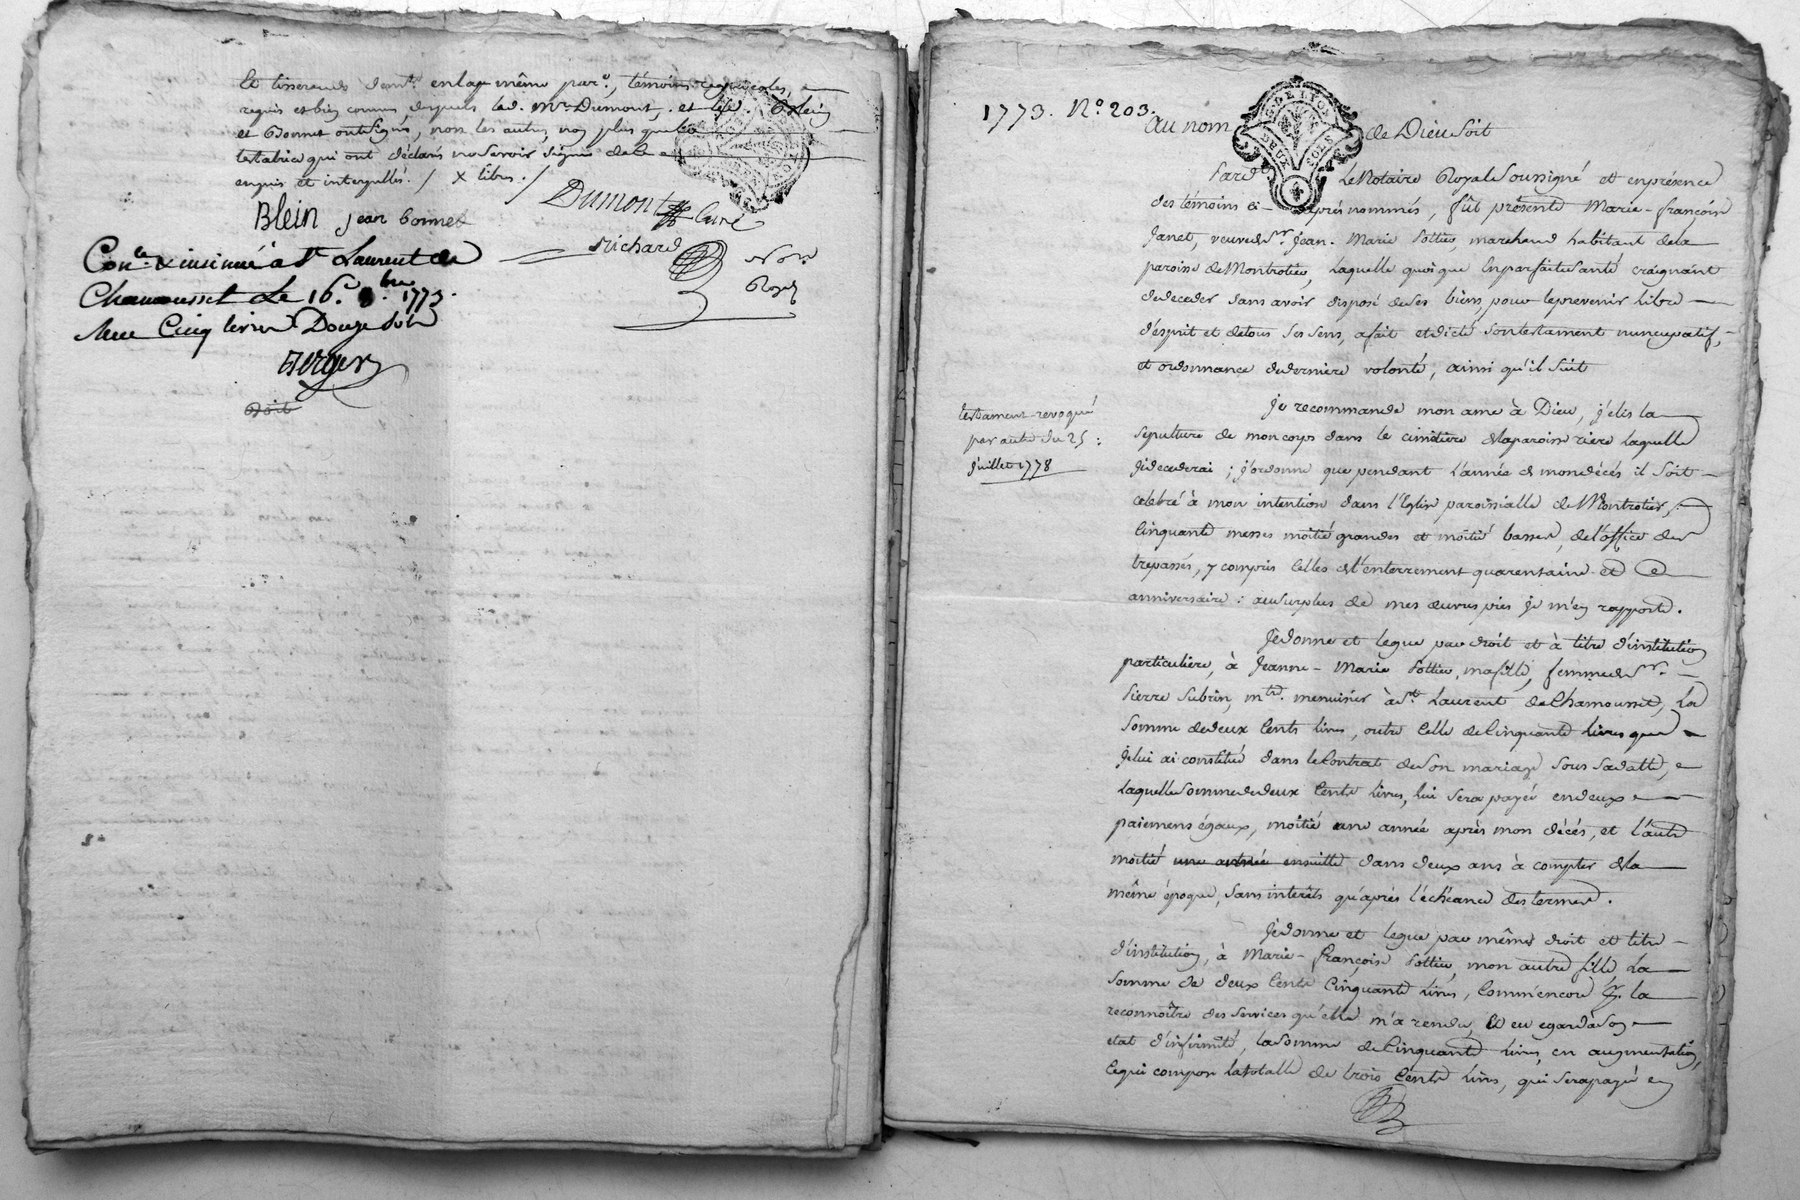 et tisserands demt. en lad. même par., témoins
requis et bien connus, desquels led. Mre Dumont, et lesd. Blein
et Bonnet ont signé, non les autres, non plus que la
testatrice qui ont déclaré ne savoir signer de ce
enquis et interpellés. / x libre. /
Blein jean bonnet Dumont Curé
Richard Not. Royal
Conlé & insinué à St Laurent de
Chamousset Le 16e 9bre 1773.
Reçu Cinq livres Douze sols
Berger
1773. No. 203.
G. DE LYON
DEUX SOLS
au nom de Dieu soit
Pardt Le Notaire Royal Soussigné et en présence
des témoins ci-après nommés, fût présente Marie-françoise
Janet, veuve de Sr. Jean-Marie Pottier marchand habitant de la
paroisse de Montrotier, Laquelle quoique en parfaite santé craignant
de deceder sans avoir disposé de ses biens, pour le prevenir libre
d'esprit et de tous ses sens, a fait et dicté son testament nuncupatif,
et ordonnance de derniere volonté, ainsi qu'il suit
je recommande mon ame à Dieu, j'elis la
sepulture de mon corps dans le cimitière de la paroisse riere laquelle
je decederai ; j'ordonne que pendant l'année de mon décés il soit
celebré à mon intention dans l'Eglise paroissialle de Montrotier,
Cinquante messes moitié grandes et moitié basses, de l'office des
trepassés, y compris celles de l'enterrement quarantaine et
anniversaire : au surplus de mes œuvres pies je m'en rapporte.
testament revoqué
par autre du 25
juillet 1778
Je donne et legue par droit et à titre d'institution
particuliere, à Jeanne-Marie Pottier, ma fille, femme de Sr.
Pierre Subrin, mtre. menuisier à St. Laurent de Chamousset, La
somme de deux Cents livres, outre celle de Cinquante livres que
je lui ai constitué dans le Contrat de son mariage sous sa datte,
laquelle somme de deux Cents livres, lui sera payée en deux
paiemens égaux, moitié une année après mon décés, et l'autre
moitié une année ensuitte dans deux ans à compter de la
même époque, sans interêts qu'après l'échéance des termes.
Je donne et legue par même droit et titre
d'institution, à Marie-françoise Pottier, mon autre fille, La
somme de deux Cents Cinquante livres, Comm'encore pr. la
reconnoître des services qu'elle m'a rendu, Et eu egard à son
etat d'infirmité, la somme de Cinquante livres, en augmentation,
ce qui compose la totalle de trois Cents livres, qui sera payé en